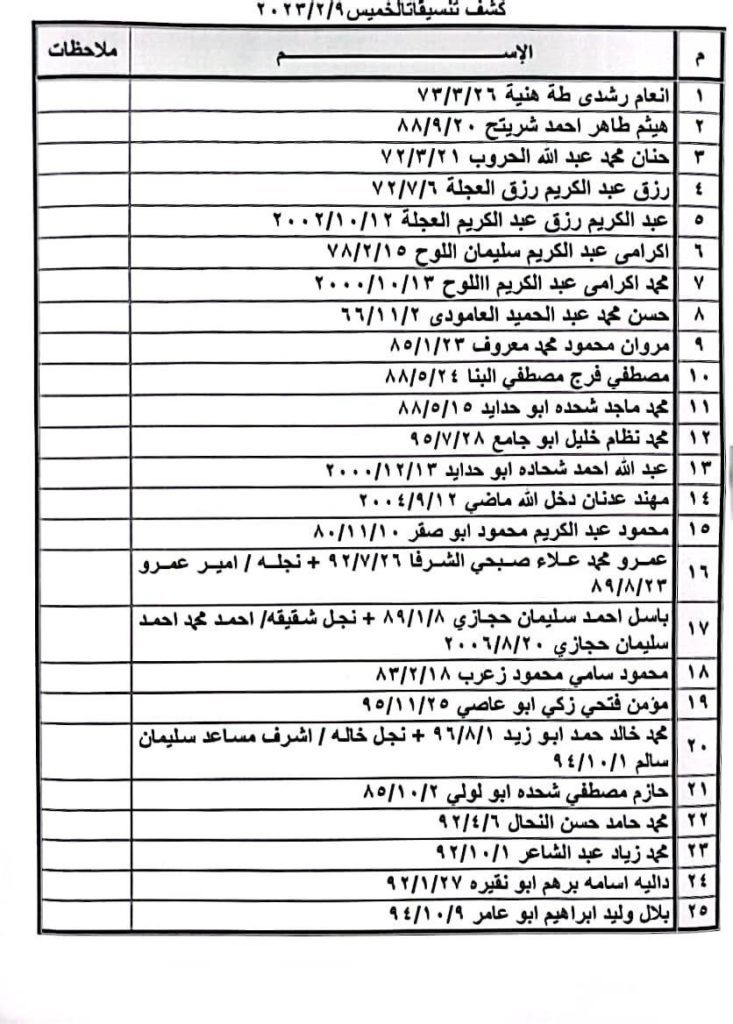 كشف تنسيقات الخميس ٢٠٢٣/٢/٩
م الإســـــــم ملاحظات
١ انعام رشدى طة هنية ٧٣/٣/٢٦
٢ هيثم طاهر احمد شريتح ٨٨/٩/٢٠
٣ حنان محمد عبد الله الحروب ٧٢/٣/٢١
٤ رزق عبد الكريم رزق العجلة ٧٢/٧/٦
٥ عبد الكريم رزق عبد الكريم العجلة ٢٠٠٢/١٠/١٢
٦ اكرامى عبد الكريم سليمان اللوح ٧٨/٢/١٥
٧ محمد اكرامى عبد الكريم االلوح ٢٠٠٠/١٠/١٣
٨ حسن محمد عبد الحميد العامودى ٦٦/١١/٢
٩ مروان محمود محمد معروف ٨٥/١/٢٣
١٠ مصطفي فرج مصطفي البنا ٨٨/٥/٢٤
١١ محمد ماجد شحده ابو حدايد ٨٨/٥/١٥
١٢ محمد نظام خليل ابو جامع ٩٥/٧/٢٨
١٣ عبد الله احمد شحاده ابو حدايد ٢٠٠٠/١٢/١٣
١٤ مهند عدنان دخل الله ماضي ٢٠٠٤/٩/١٢
١٥ محمود عبد الكريم محمود ابو صقر ٨٠/١١/١٠
١٦ عمرو محمد علاء صبحي الشرفا ٩٢/٧/٢٦ + نجله / امير عمرو
٨٩/٨/٢٣
١٧ باسل احمد سليمان حجازي ٨٩/١/٨ + نجل شقيقه/ احمد محمد احمد
سليمان حجازي ٢٠٠٦/٨/٢٠
١٨ محمود سامي محمود زعرب ٨٣/٢/١٨
١٩ مؤمن فتحي زكي ابو عاصي ٩٥/١١/٢٥
٢٠ محمد خالد حمد ابو زيد ٩٦/٨/١ + نجل خاله / اشرف مساعد سليمان
سالم ٩٤/١٠/١
٢١ حازم مصطفي شحده ابو لولي ٨٥/١٠/٢
٢٢ محمد حامد حسن النحال ٩٢/٤/٦
٢٣ محمد زياد عبد الشاعر ٩٢/١٠/١
٢٤ داليه اسامه برهم ابو نقيره ٩٢/١/٢٧
٢٥ بلال وليد ابراهيم ابو عامر ٩٤/١٠/٩